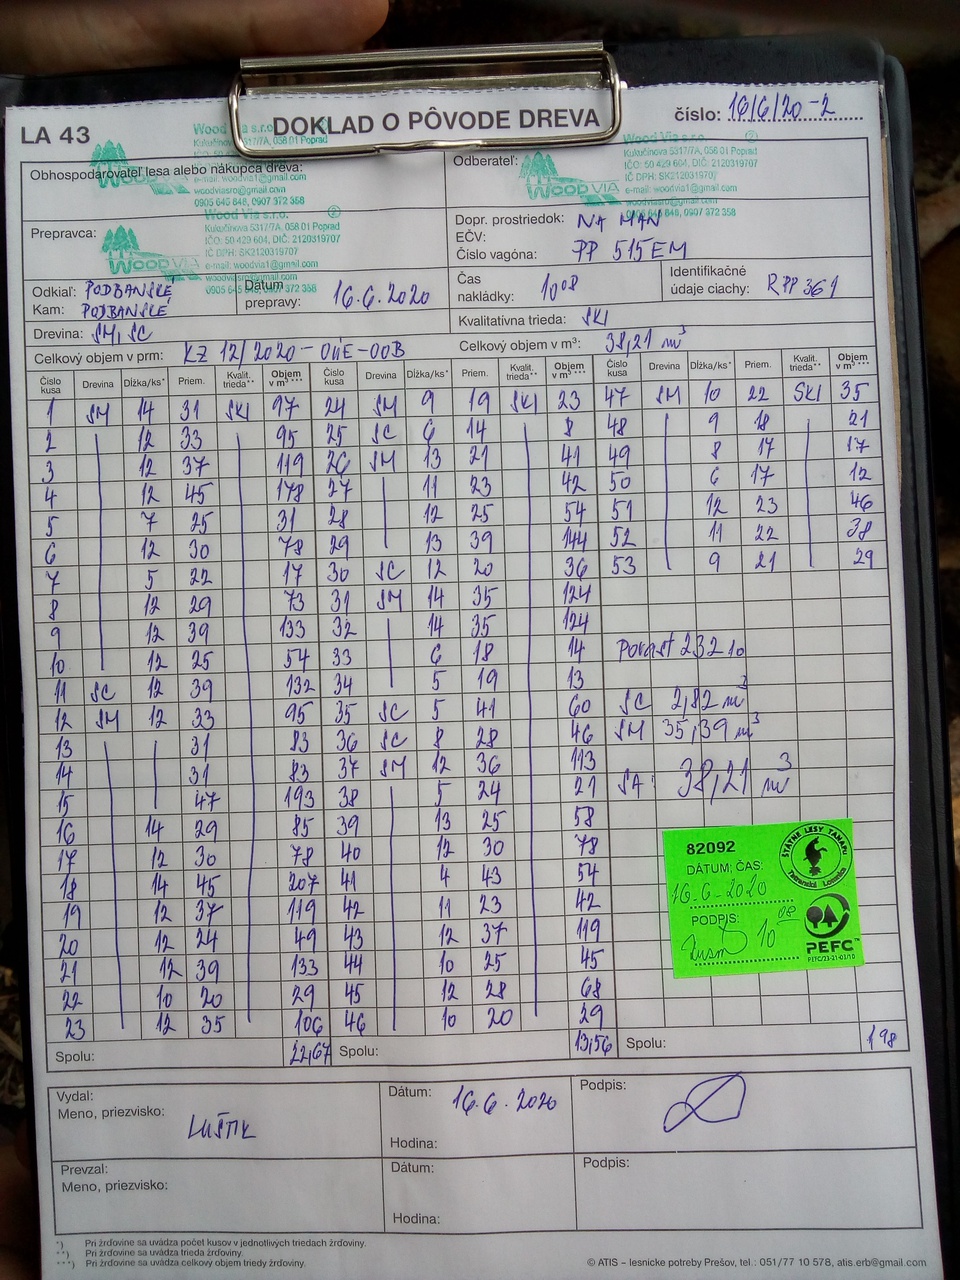 LA 43
DOKLAD O PÔVODE DREVA
číslo: 16/6/20-2
Obhospodarovateľ lesa alebo nákupca dreva:
Wood Via s.r.o.
Kukučínova 5317/7A, 058 01 Poprad
e-mail: woodvia1@gmail.com
woodviasro@gmail.com
0905 645 848, 0907 372 358
Odberateľ:
Wood Via s.r.o. 2
Kukučínova 5317/7A, 058 01 Poprad
IČO: 50 429 604, DIČ: 2120319707
IČ DPH: SK2120319707
e-mail: woodvia1@gmail.com
WOODVIA
Prepravca:
Wood Via s.r.o. 2
Kukučínova 5317/7A, 058 01 Poprad
IČO: 50 429 604, DIČ: 2120319707
IČ DPH: SK2120319707
e-mail: woodvia1@gmail.com
WOODVIA
Dopr. prostriedok: NA MAN
EČV:
Číslo vagóna: PP 515EM
Odkiaľ: PODBANSKÉ
Kam: PODBANSKÉ
Dátum prepravy: 16.6.2020
Čas nakládky: 10 08
Identifikačné údaje ciachy: RPP 361
Drevina: SM, SC
Kvalitatívna trieda: SKI
Celkový objem v prm: KZ 12/2020-
Celkový objem v m³: 38,21 m³
Číslo kusa Drevina Dĺžka/ks* Priem. Kvalit. trieda** Objem v m³ *** Číslo kusa Drevina Dĺžka/ks* Priem. Kvalit. trieda** Objem v m³ *** Číslo kusa Drevina Dĺžka/ks* Priem. Kvalit. trieda** Objem v m³ ***
1 SM 14 31 SKI 97 24 SM 9 19 SKI 23 47 SM 10 22 SKI 35
2 12 33 95 25 SC 6 14 8 48 9 18 21
3 12 37 119 26 SM 13 21 41 49 8 17 17
4 12 45 178 27 11 23 42 50 6 17 12
5 7 25 31 28 12 25 54 51 12 23 46
6 12 30 78 29 13 39 144 52 11 22 38
7 5 22 17 30 SC 12 20 36 53 9 21 29
8 12 29 73 31 SM 14 35 124
9 12 39 133 32 14 35 124
10 12 25 54 33 6 18 14 Porast 232 10
11 SC 12 39 132 34 5 19 13
12 SM 12 33 95 35 SC 5 41 60 SC 2,82 m³
13 31 83 36 SC 8 28 46 SM 35,39 m³
14 31 83 37 SM 12 36 113
15 47 193 38 5 24 21 SA: 38,21 m³
16 14 29 85 39 13 25 58
17 12 30 78 40 12 30 78
18 14 45 207 41 4 43 54
19 12 37 119 42 11 23 42
20 12 24 49 43 12 37 119
21 12 39 133 44 10 25 45
22 10 20 29 45 12 28 68
23 12 35 106 46 10 20 29
Spolu: 22,67 Spolu: 13,56 Spolu: 198
82092
DÁTUM: ČAS:
16.6.2020
PODPIS:
10 08
ŠTÁTNE LESY TANAPU
Tatranská Lomnica
PEFC™
PEFC/23-21-03/10
Vydal:
Meno, priezvisko: LUŠTIK
Dátum: 16.6.2020
Hodina:
Podpis:
Prevzal:
Meno, priezvisko:
Dátum:
Hodina:
Podpis:
*) Pri žrďovine sa uvádza počet kusov v jednotlivých triedach žrďoviny.
**) Pri žrďovine sa uvádza trieda žrďoviny.
***) Pri žrďovine sa uvádza celkový objem triedy žrďoviny.
© ATIS – lesnícke potreby Prešov, tel.: 051/77 10 578, atis.erb@gmail.com